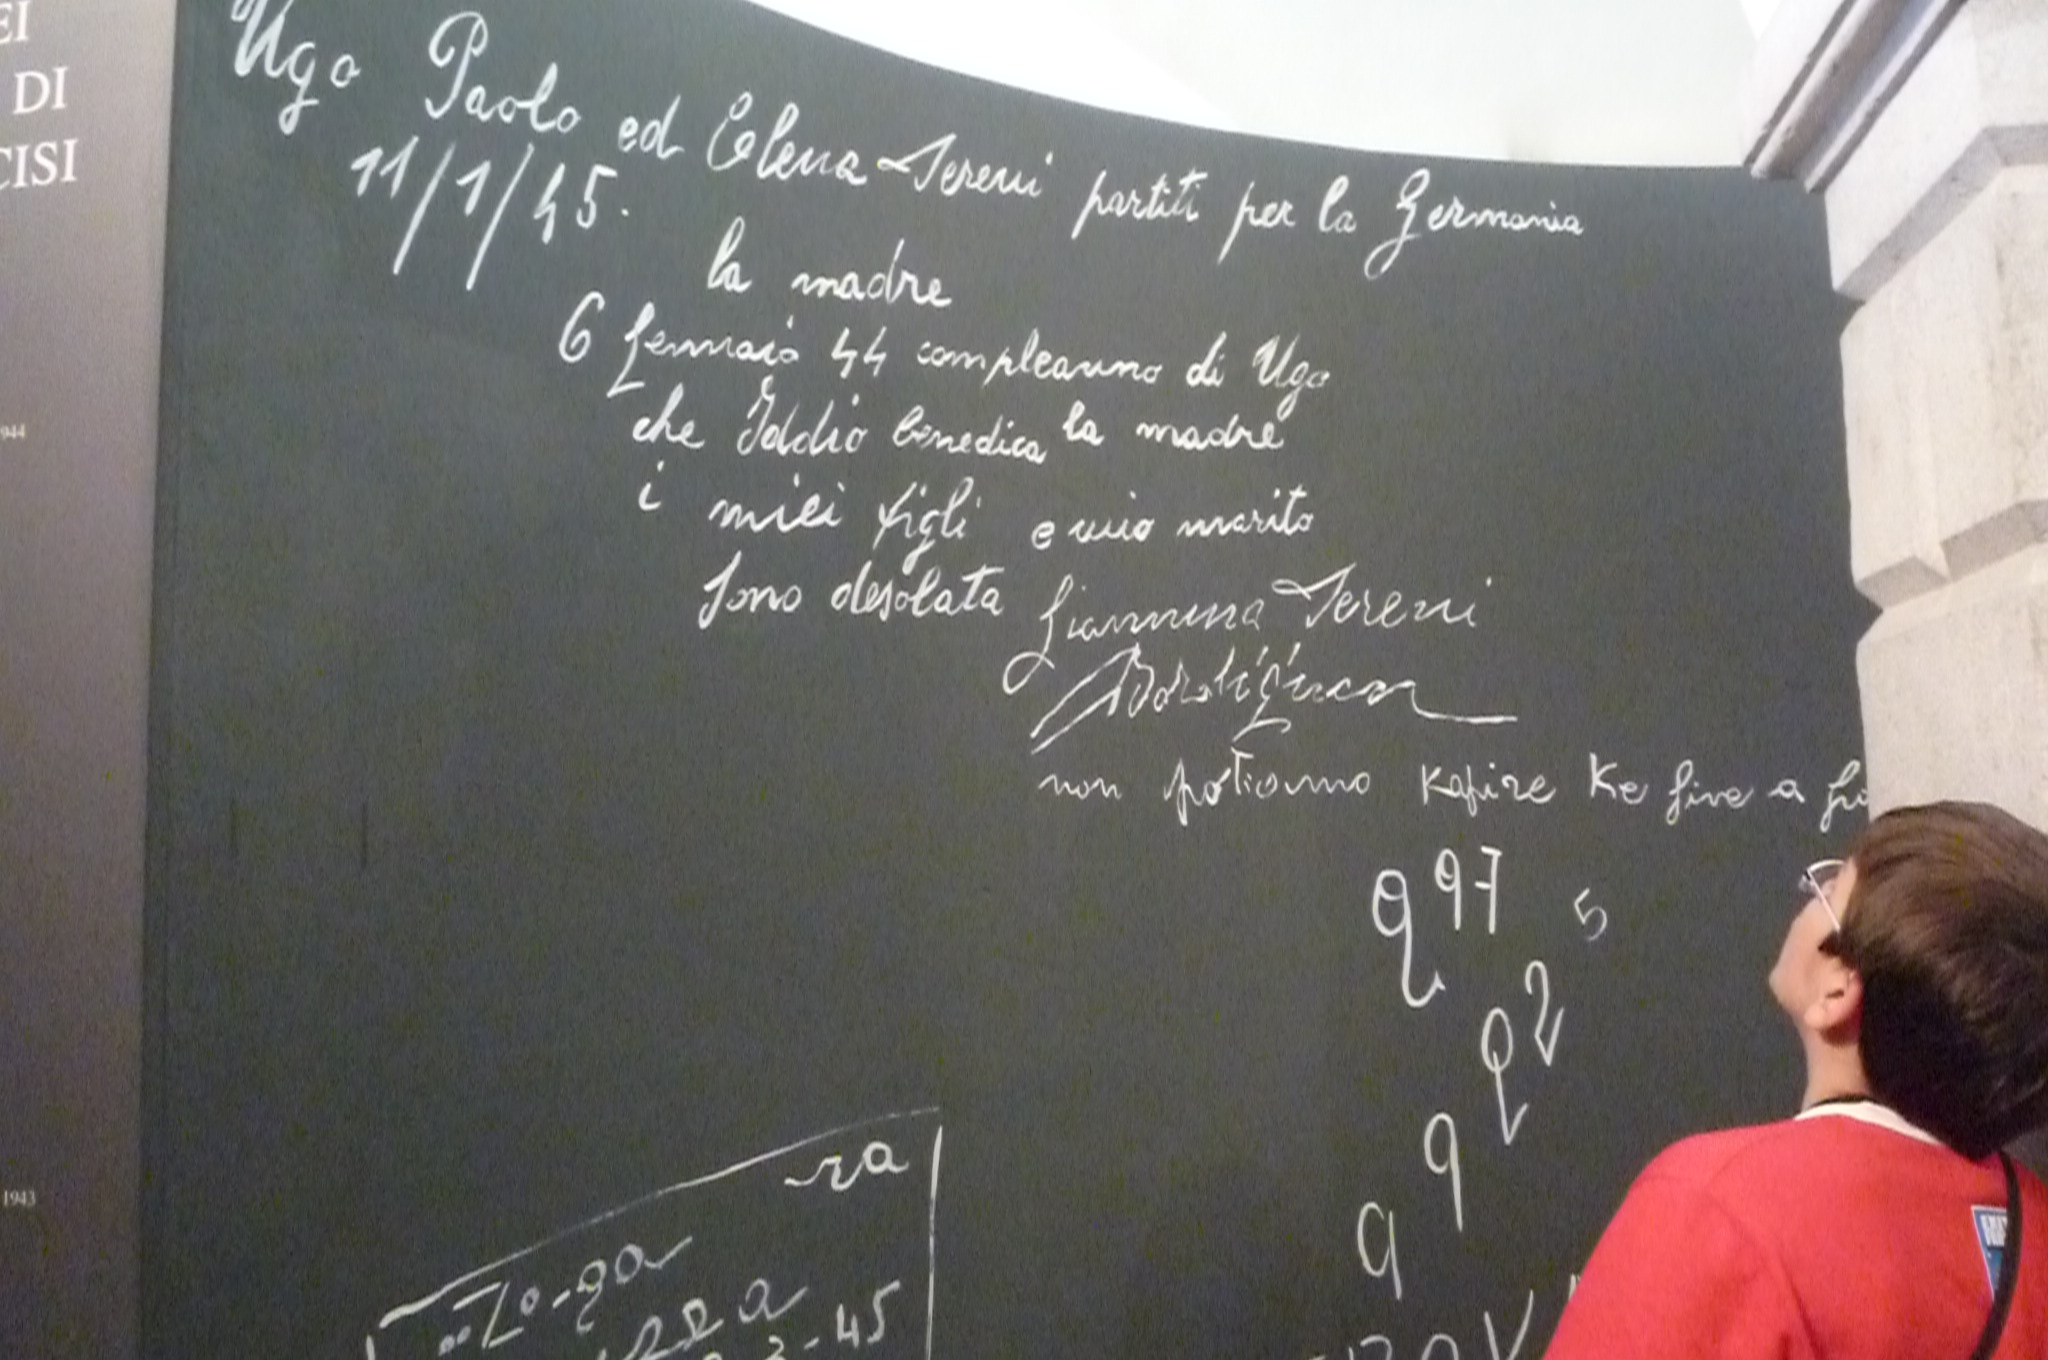 EI
DI
CISI
944
1943
Ugo Paolo ed Elena Sereni partiti per la Germania
11/1/45.
la madre
6 gennaio 44 compleanno di Ugo
che Iddio benedica la madre
i miei figli e mio marito
Sono desolata Giannina Sereni
Bordignon
non potiamo kapire ke five a
q 97 5
q 2
q
q
ra
Zo-ga
3-45